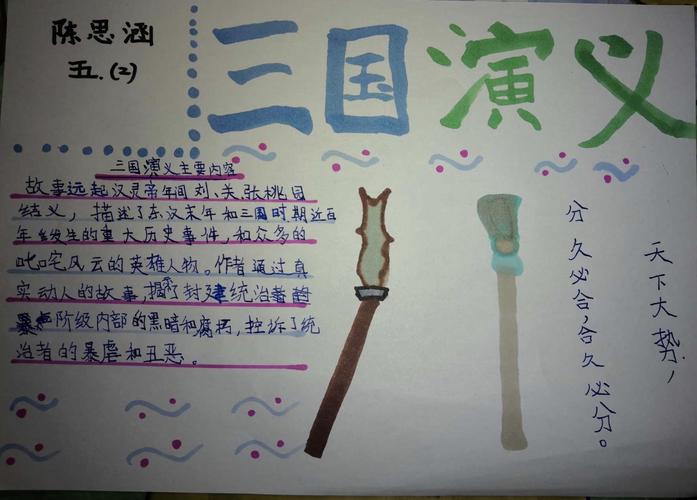 陈思涵
五.(2)
三国演义
三国演义主要内容
故事远起汉灵帝年间刘、关、张桃园
结义，描述了东汉末年和三国时期近百
年发生的重大历史事件，和众多的
叱咤风云的英雄人物。作者通过真
实动人的故事，揭秀了封建统治者的
阶级内部的黑暗和腐朽，控诉了统
治者的暴虐和丑恶。
天下大势，
分久必合，合久必分。